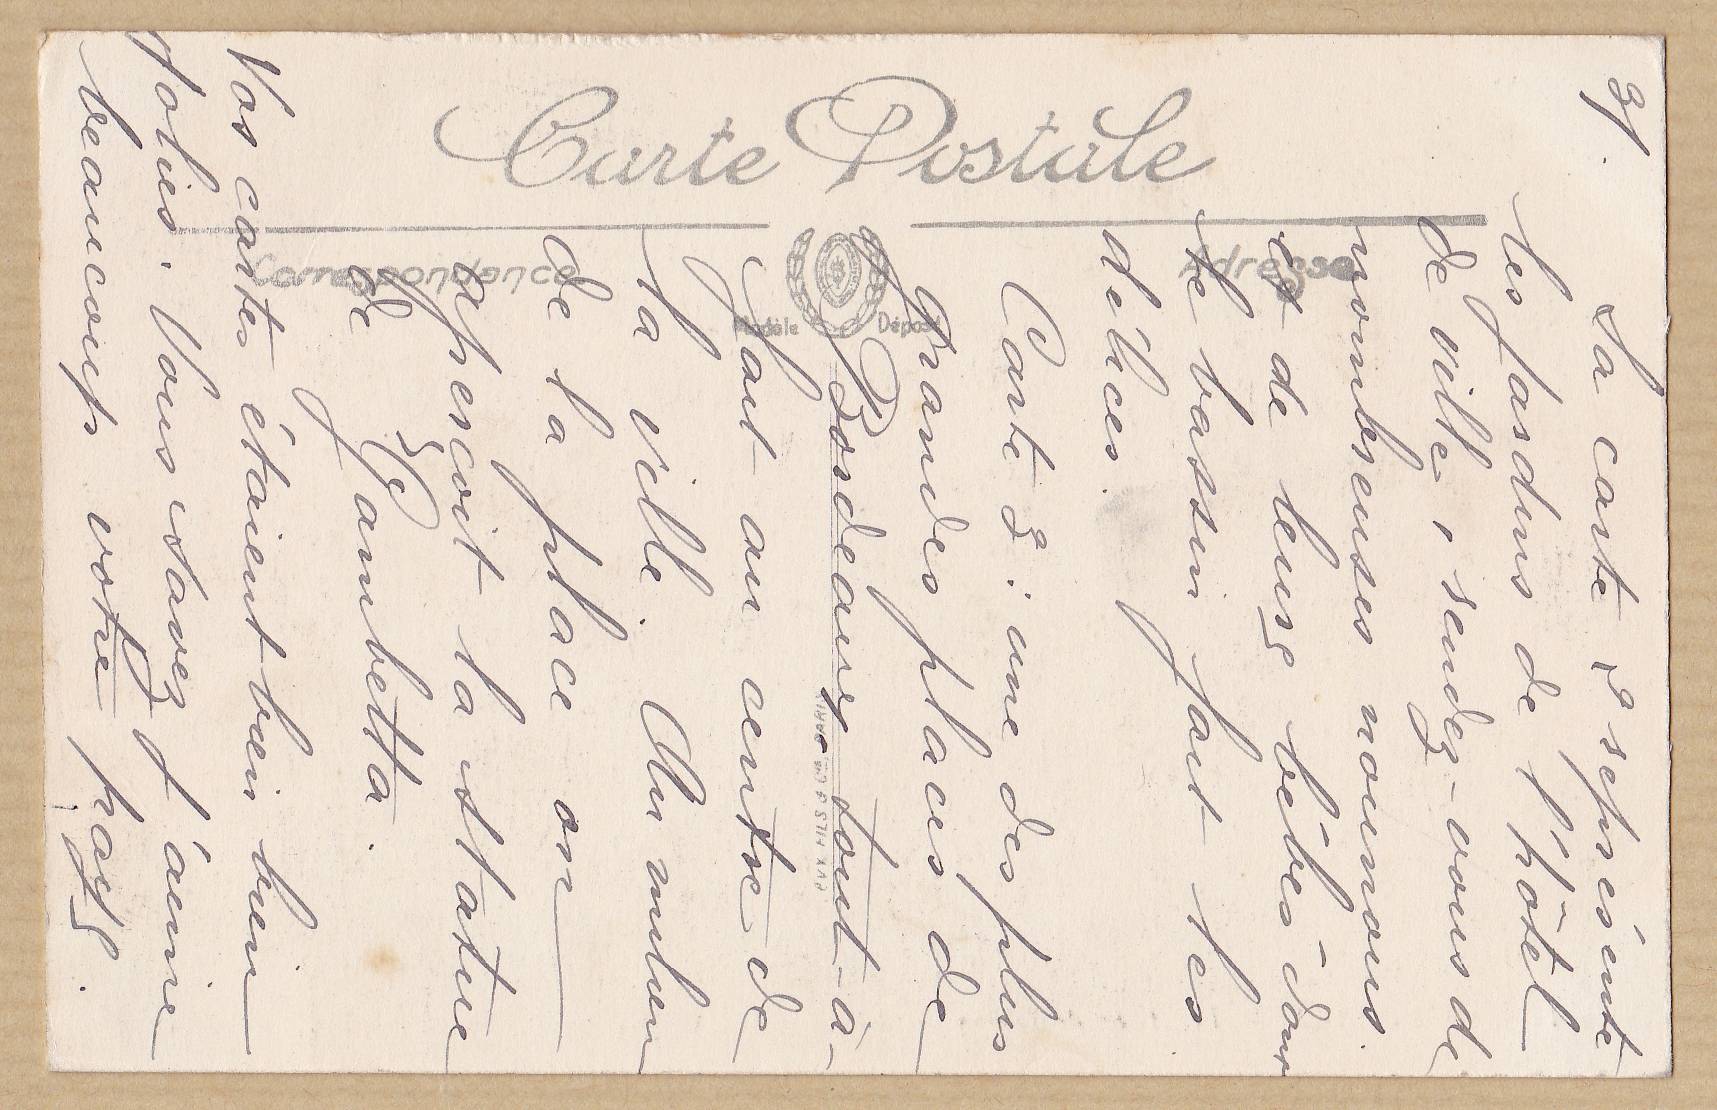 Carte Postale
Correspondance
Adresse
Modèle Déposé
3/.
La carte 2 représente
les jardins de l'hôtel
de ville, rendez-vous de
nombreuses nounous.
et de leurs bébés dont
le bassin fait les
délices.
Carte 3 : une des plus
grandes places de
Bordeaux tout-à-
fait au centre de
la ville. Au milieu
de la place on
aperçoit la statue
de Gambetta.
Vos cartes étaient bien bien
jolies. Vous savez j'aime
beaucoup votre pays.